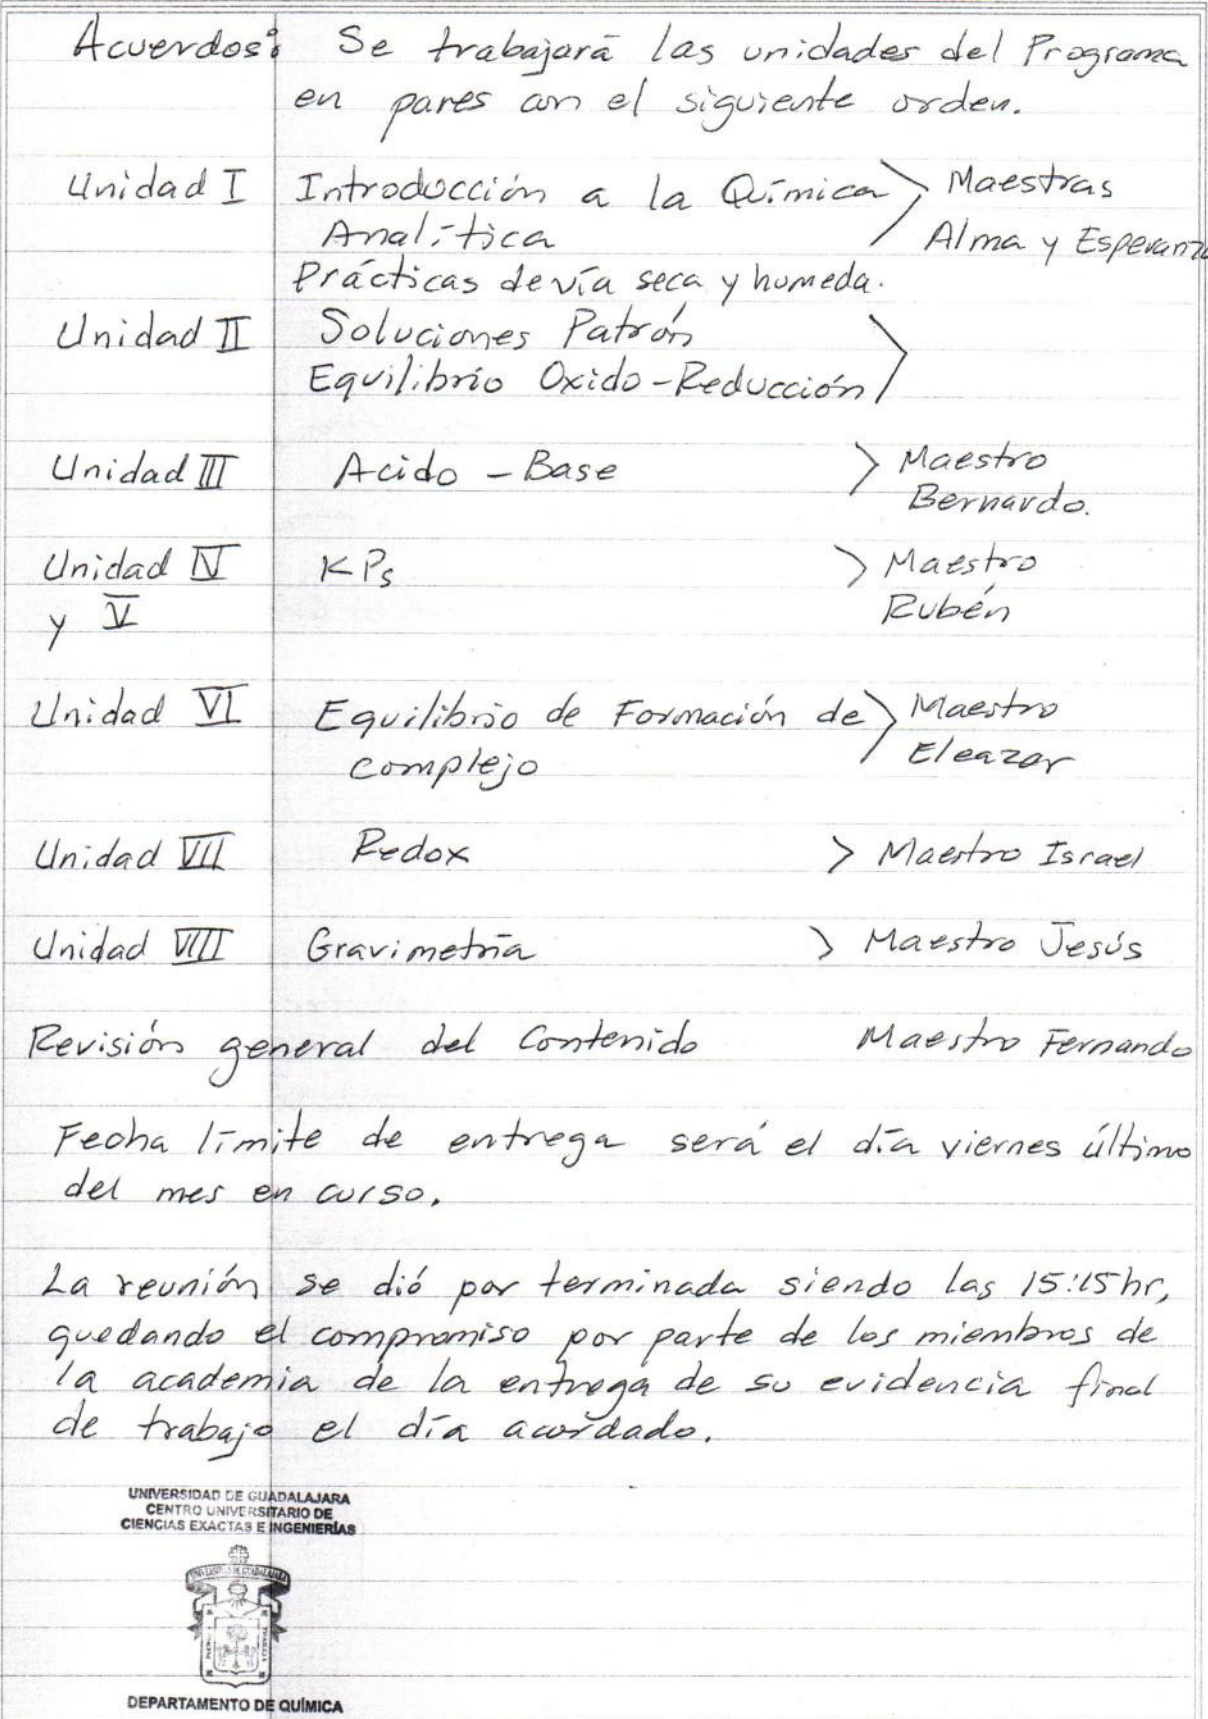 Acuerdos: Se trabajará las unidades del Programa
en pares con el siguiente orden.
Unidad I Introducción a la Química Maestras
Analítica Alma y Esperanza
Prácticas de vía seca y humeda.
Unidad II Soluciones Patrón
Equilibrio Oxido-Reducción
Unidad III Acido - Base Maestro
Bernardo.
Unidad IV KPs Maestro
y V Rubén
Unidad VI Equilibrio de Formación de Maestro
complejo Eleazar
Unidad VII Redox > Maestro Israel
Unidad VIII Gravimetría > Maestro Jesús
Revisión general del Contenido Maestro Fernando
Fecha límite de entrega será el día viernes último
del mes en curso.
La reunión se dió por terminada siendo las 15:15hr,
quedando el compromiso por parte de los miembros de
la academia de la entrega de su evidencia final
de trabajo el día acordado.
UNIVERSIDAD DE GUADALAJARA
CENTRO UNIVERSITARIO DE
CIENCIAS EXACTAS E INGENIERÍAS
DEPARTAMENTO DE QUÍMICA